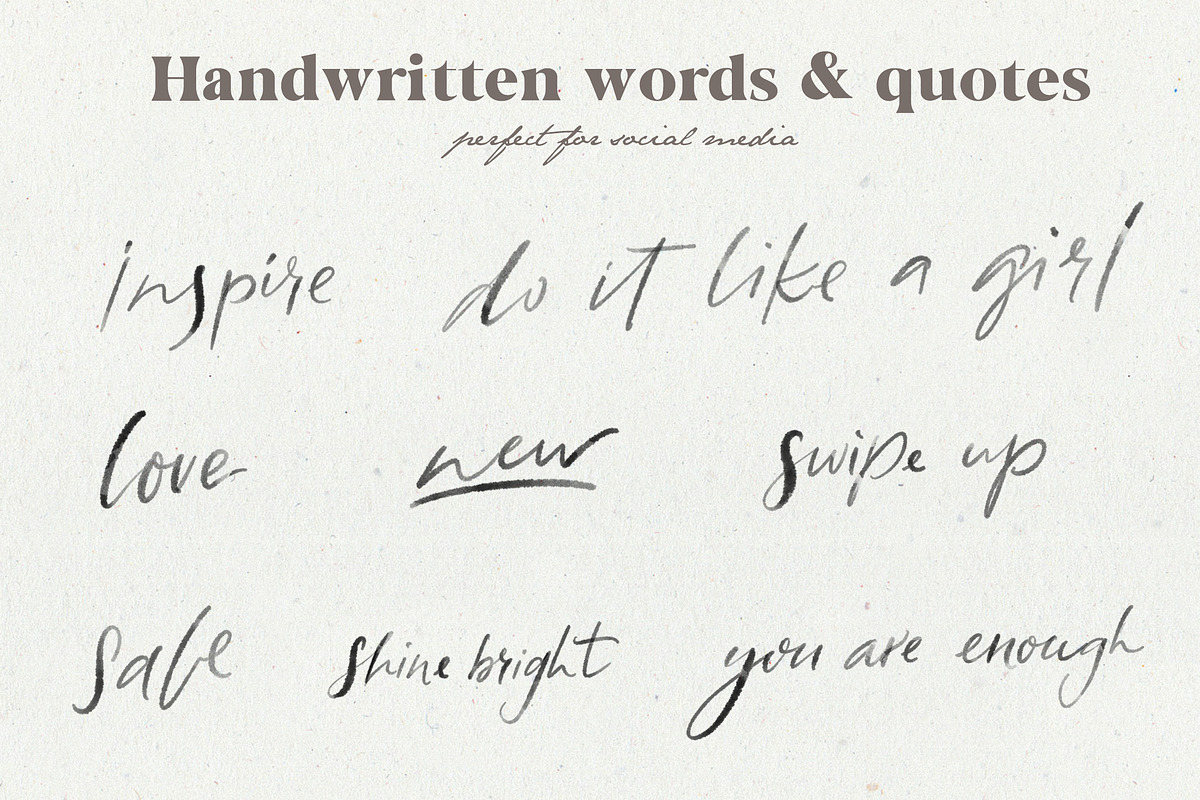 Handwritten words & quotes
perfect for social media
inspire do it like a girl
love new swipe up
Sale Shine bright you are enough